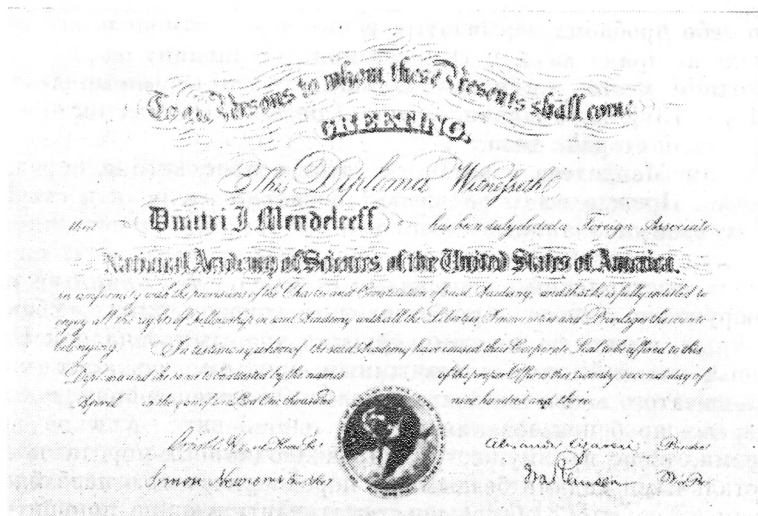 To all Persons to whom these Presents shall come
GREETING.
This Diploma Witnesseth
that Dmitri J. Mendeleeff has been duly elected a Foreign Associate
National Academy of Sciences of the United States of America.
in conformity with the provisions of the Charter and Constitution of said Academy, and that he is fully entitled to
enjoy all the rights of Fellowship in said Academy with all the Liberties Immunities and Privileges thereunto
belonging In testimony whereof the said Academy have caused their Corporate Seal to be affixed to this
Diploma and the same to be attested by the names of the proper Officers this twenty second day of
April in the year of our Lord one thousand nine hundred and three
Arnold Hague Home Sec.
Alexander Agassiz President
Simon Newcomb
Ira Remsen